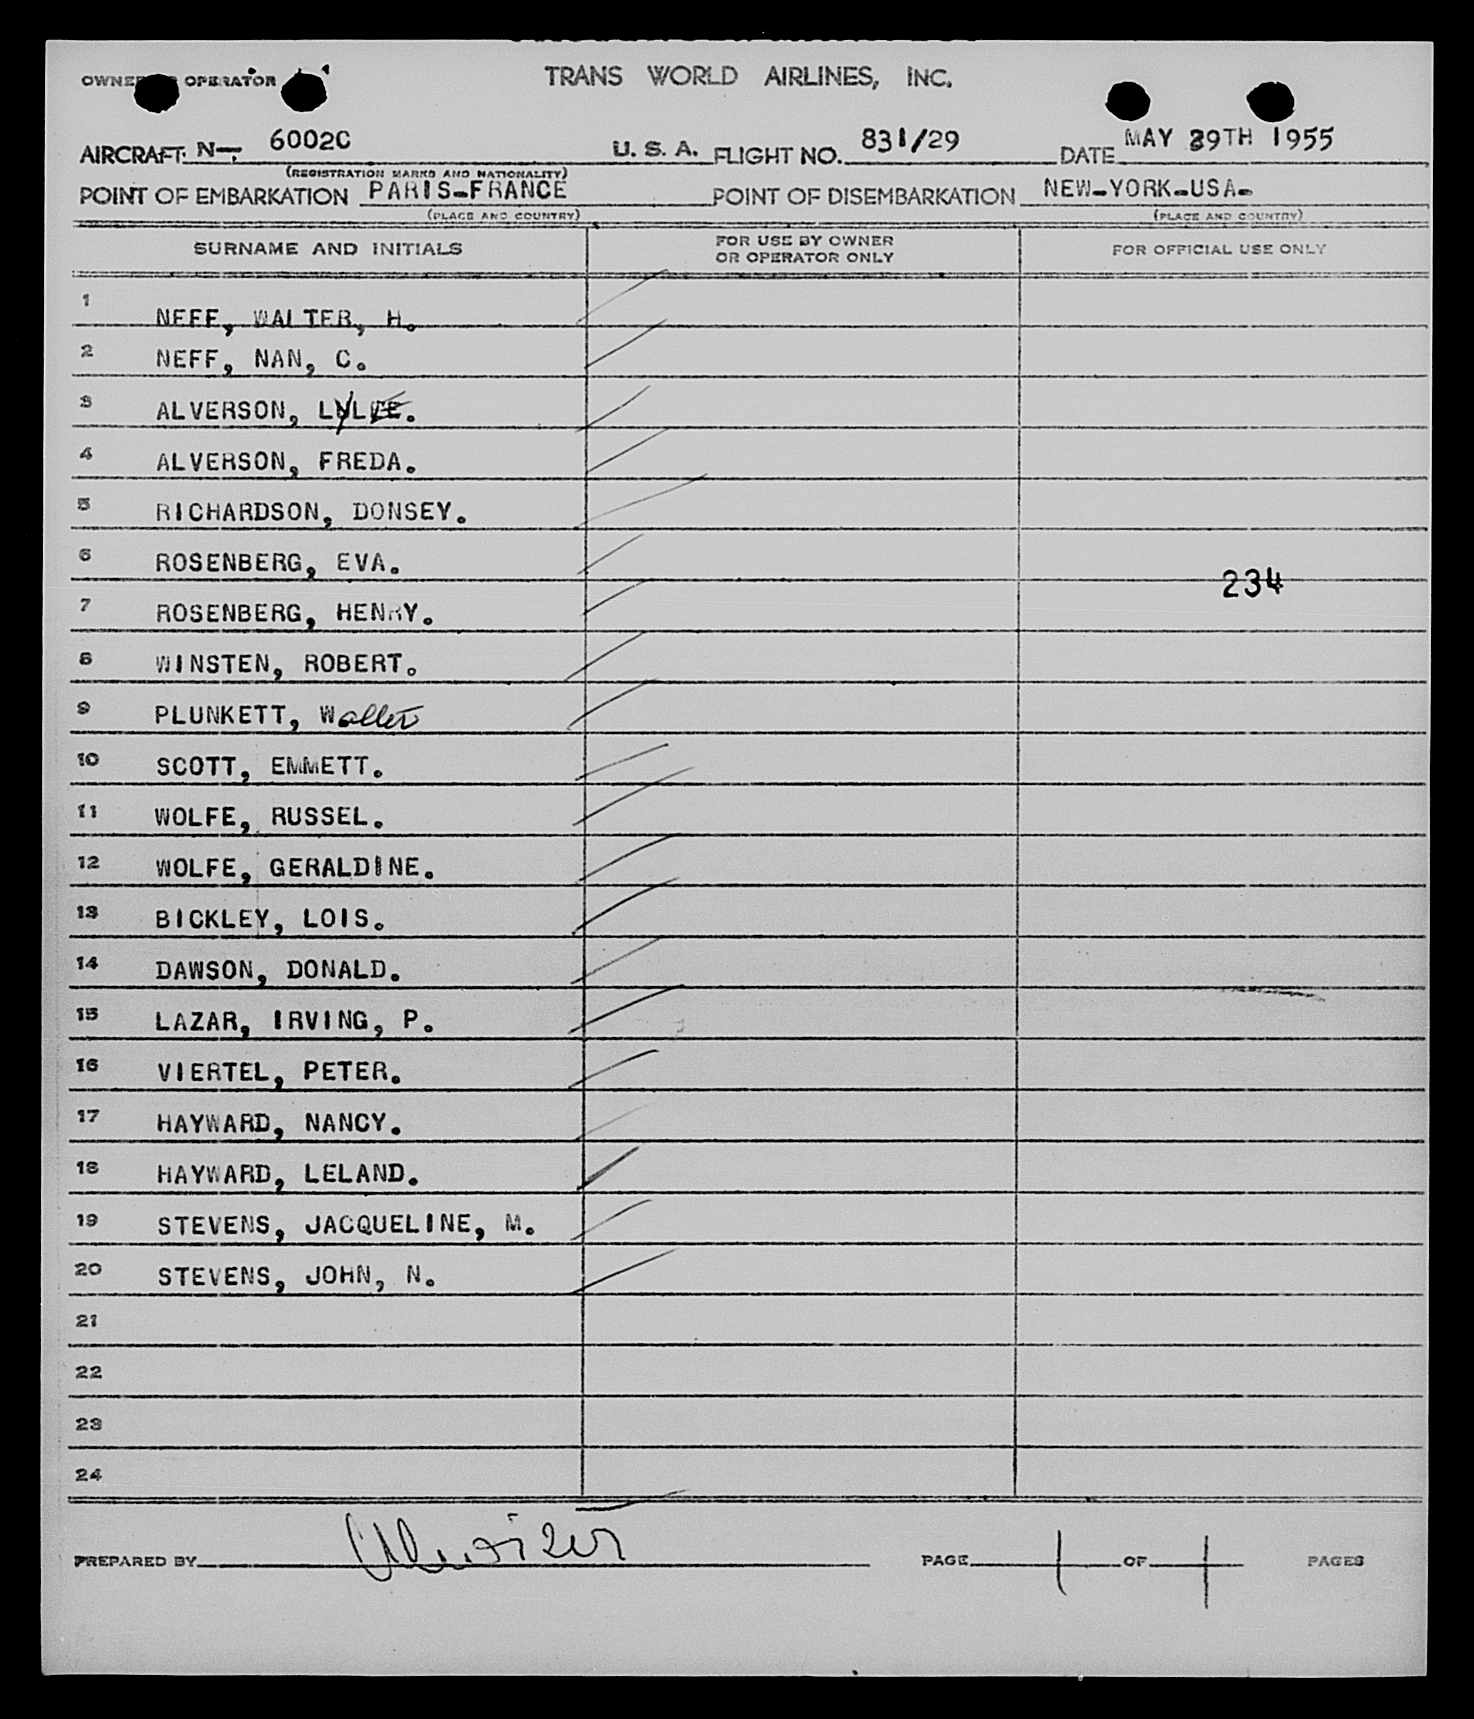 OWNER OR OPERATOR TRANS WORLD AIRLINES, INC.
AIRCRAFT: N-, 6002C U. S. A. FLIGHT NO. 831/29 DATE MAY 29TH 1955
(REGISTRATION MARKS AND NATIONALITY)
POINT OF EMBARKATION PARIS-FRANCE POINT OF DISEMBARKATION NEW-YORK-USA-
(PLACE AND COUNTRY) (PLACE AND COUNTRY)
SURNAME AND INITIALS FOR USE BY OWNER OR OPERATOR ONLY FOR OFFICIAL USE ONLY
1 NEFF, WALTER, H.
2 NEFF, NAN, C.
3 ALVERSON,
4 ALVERSON, FREDA.
5 RICHARDSON, DONSEY.
6 ROSENBERG, EVA.
234
7 ROSENBERG, HENRY.
8 WINSTEN, ROBERT.
9 PLUNKETT, Walter
10 SCOTT, EMMETT.
11 WOLFE, RUSSEL.
12 WOLFE, GERALDINE.
13 BICKLEY, LOIS.
14 DAWSON, DONALD.
15 LAZAR, IRVING, P.
16 VIERTEL, PETER.
17 HAYWARD, NANCY.
18 HAYWARD, LELAND.
19 STEVENS, JACQUELINE, M.
20 STEVENS, JOHN, N.
21
22
23
24
PREPARED BY PAGE 1 OF 1 PAGES